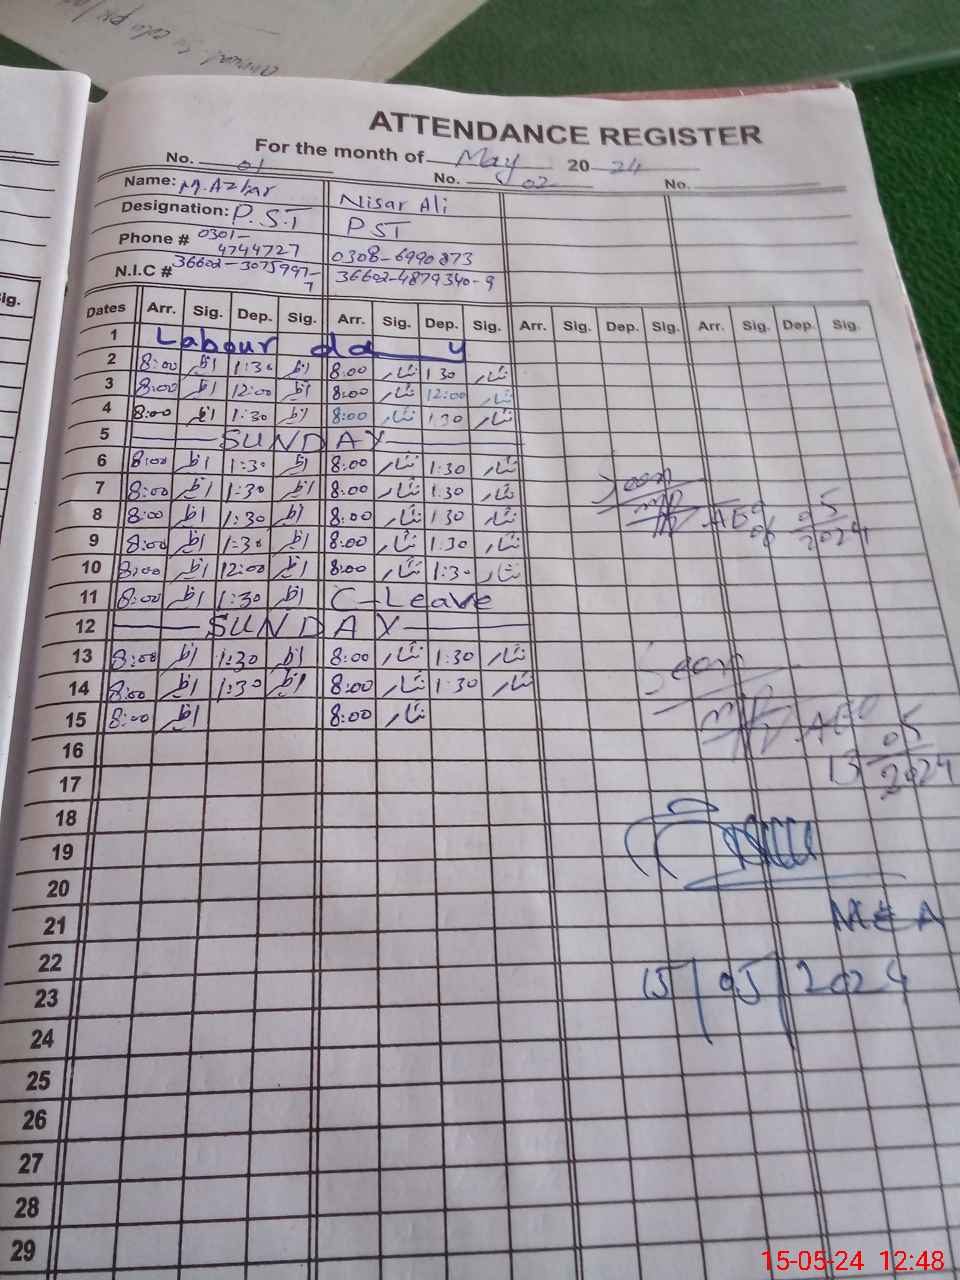 ATTENDANCE REGISTER
For the month of May 2024
No. 01 No. 02 No.
Name: M. Azhar Nisar Ali
Designation: P.S.T PST
Phone # 0301-4744727 0308-6990873
N.I.C # 36602-3075997-7 36602-4879340-9
Dates Arr. Sig. Dep. Sig. Arr. Sig. Dep. Sig. Arr. Sig. Dep. Sig. Arr. Sig. Dep. Sig.
1 Labour day
2 8:00 1:30 8:00 نثار 1:30 نثار
3 8:00 12:00 8:00 نثار 12:00 نثار
4 8:00 1:30 8:00 نثار 1:30 نثار
5 SUNDAY
6 8:00 1:30 8:00 نثار 1:30 نثار
7 8:00 1:30 8:00 نثار 1:30 نثار
8 8:00 1:30 8:00 نثار 1:30 نثار
9 8:00 1:30 8:00 نثار 1:30 نثار
10 8:00 12:00 8:00 نثار 1:30 نثار
11 8:00 1:30 C-Leave
12 SUNDAY
13 8:00 1:30 8:00 نثار 1:30 نثار
14 8:00 1:30 8:00 نثار 1:30 نثار
15 8:00 8:00 نثار
16
17
18
19
20
21
22
23
24
25
26
27
28
29
Sig.
Seen
AEO
06 05 2024
Seen
AEO
13 05 2024
MEA
15/05/2024
15-05-24 12:48